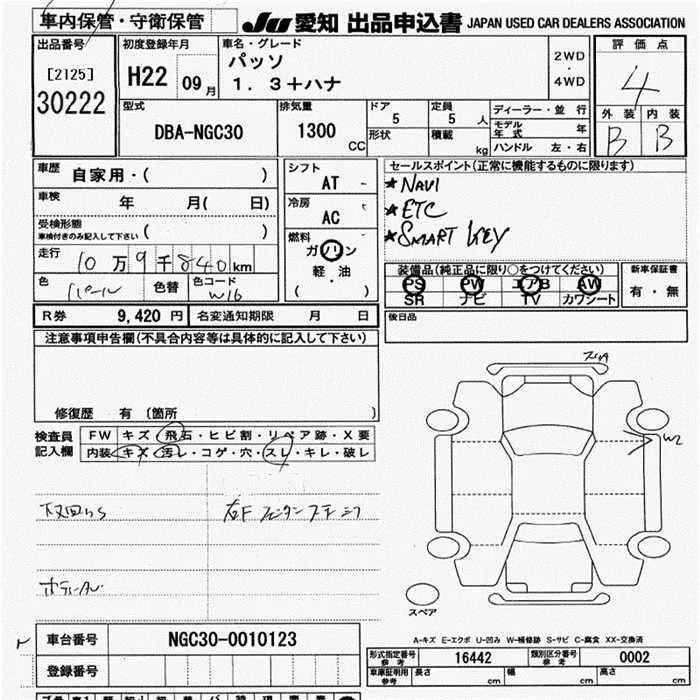 車内保管・守衛保管 JU 愛知 出品申込書 JAPAN USED CAR DEALERS ASSOCIATION
出品番号 初度登録年月 車名・グレード 評価点
[2125] H22 09月 パッソ 2WD・4WD 4
30222 1.3+ハナ
外装 内装
B B
型式 排気量 ドア 定員 ディーラー・並行
DBA-NGC30 1300CC 5 5人 モデル年式 年
形状 積載 kg ハンドル 左・右
車歴 自家用・( ) シフト AT - セールスポイント(正常に機能するものに限ります)
車検 年 月( 日) 冷房 AC - ★NAVI
受検形態 ( ) ★ETC
車検付きのみ記入して下さい 燃料 ★SMART KEY
走行 10万9千840km ガソリン
軽・油
( )
装備品(純正品に限り○をつけてください) 新車保証書
色 パール 色替 色コード W16 PS PW エアB AW 有・無
SR ナビ TV カワシート
R券 9,420円 名変通知期限 月 日 後日品
注意事項申告欄(不具合内容等は具体的に記入して下さい)
修復歴 有 〔箇所 〕
検査員記入欄 FW キズ・飛石・ヒビ割・リペア跡・X要
内装 キズ・汚レ・コゲ・穴・スレ・キレ・破レ
W2
スペア
A-キズ E-エクボ U-凹み W-補修跡 S-サビ C-腐食 XX-交換済
車台番号 NGC30-0010123 形式指定番号 参考 16442 類別区分番号 参考 0002
登録番号 車庫証明用 参考 長さ cm 幅 cm 高さ cm